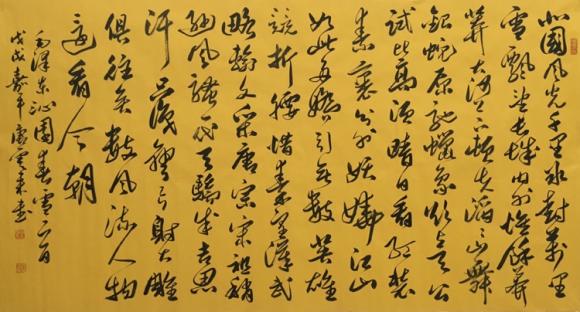 北國風光千里冰封萬里
雪飄望長城内外惟餘莽
莽大河上下頓失滔滔山舞
銀蛇原馳蠟象欲與天公
試比高須晴日看紅裝
素裹分外妖嬈江山
如此多嬌引無數英雄
競折腰惜秦皇漢武
略輸文采唐宗宋祖稍
遜風騷一代天驕成吉思
汗只識彎弓射大雕
俱往矣數風流人物
還看今朝
毛澤東沁園春雪一首
戊戌嘉平書